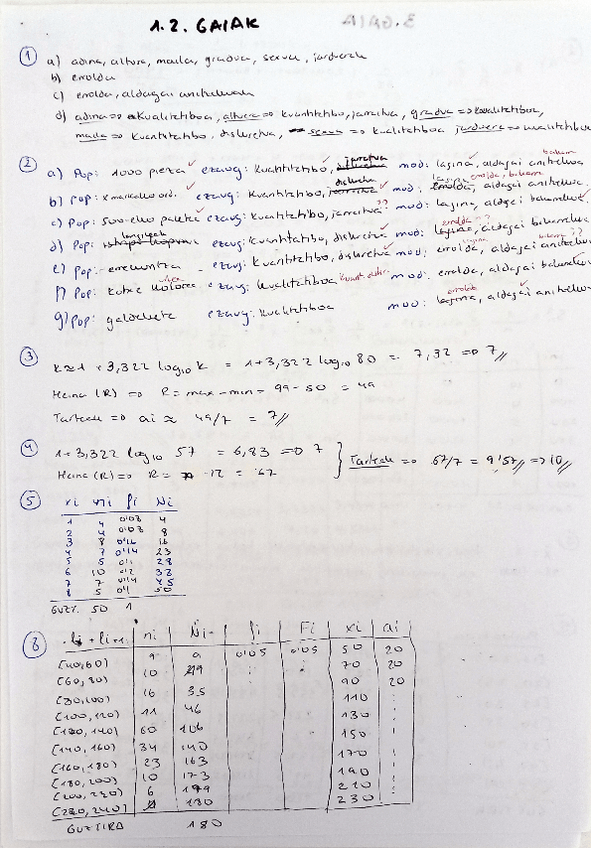 1.2. GAIAK
① a) adina, altura, maila, gradua, sexua, jarduera
b) errolda
c) errolda, aldagai anitzekoa
d) adina => Kualitatiboa, altuera => kvantitatibo, jarraitua, gradua => kualitatiboa,
maila => kvantitatibo, diskretua, sexua => kualitatiboa jarduera => kualitatiboa
② a) Pop: 1000 pieza ezaug: kvantitatibo, jarraitua mod: lagina, aldagai anitzekoa
bakarra
b) pop: ezaug: kvantitatibo, diskretua mod: errolda, aldagai anitzekoa
lagina errolda, bakarra
c) Pop: 500-eko paketea ezaug: kvantitatibo, jarraitua ?? mod: lagina, aldagai bakarrekoa
d) Pop: ezaug: kvantitatibo, diskretua mod: lagina, aldagai bakarrekoa
errolda ??
e) Pop: erremuntza ezaug: kvantitatibo, diskretua mod: errolda, aldagai anitzekoa
lagina bakarra ??
f) Pop: kotxe ezaug: kualitatiboa mod: errolda, aldagai bakarrekoa
g) Pop: galdeketa ezaug: kualitatiboa mod: lagina, aldagai anitzekoa
errolda
③ K≈1 + 3,322 log10 K = 1+3,322 log10 80 = 7,32 => 7
Heina (R) => R= max-min = 99-50 = 49
Tarteak => ai ≈ 49/7 = 7
④ 1+3,322 log10 57 = 6,83 => 7
Heina (R) => R = - 12 = 67
Tarteak => 67/7 = 9'57 => 10
⑤ xi ni fi Ni
1 4 0'08 4
2 4 0'08 8
3 8 0'16 16
4 7 0'14 23
5 5 0'1 28
6 10 0'2 38
7 7 0'14 45
8 5 0'1 50
GUZT. 50 1
⑥ Li - Li+1 ni Ni fi Fi xi ai
[40,60) 9 9 0'05 0'05 50 20
[60,80) 10 19 70 20
[80,100) 16 35 90 20
[100,120) 11 46 110
[120,140) 60 106 130
[140,160) 34 140 150
[160,180) 23 163 170
[180,200) 10 173 190
[200,220) 6 179 210
[220,240) 180 230
GUZTIRA 180